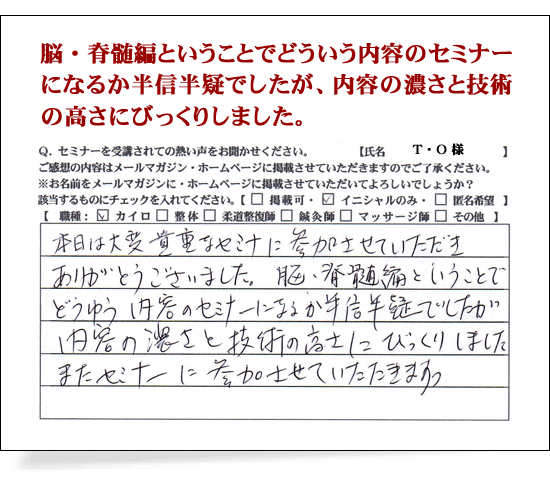 脳・脊髄編ということでどういう内容のセミナー
になるか半信半疑でしたが、内容の濃さと技術
の高さにびっくりしました。
Q. セミナーを受講されての熱い声をお聞かせください。 【氏名 T・O 様 】
ご感想の内容はメールマガジン・ホームページに掲載させていただきますのでご了承ください。
※お名前をメールマガジンに・ホームページに掲載させていただいてよろしいでしょうか?
該当するものにチェックを入れてください。【 □ 掲載可・ ☑ イニシャルのみ・ □ 匿名希望 】
【 職種: ☑ カイロ □ 整体 □ 柔道整復師 □ 鍼灸師 □ マッサージ師 □ その他 】
本日は大変貴重なセミナに参加させていただき
ありがとうございました。脳、脊髄編ということで
どうゆう内容のセミナーになるか半信半疑でしたが
内容の濃さと技術の高さにびっくりしました
またセミナーに参加させていただきます。